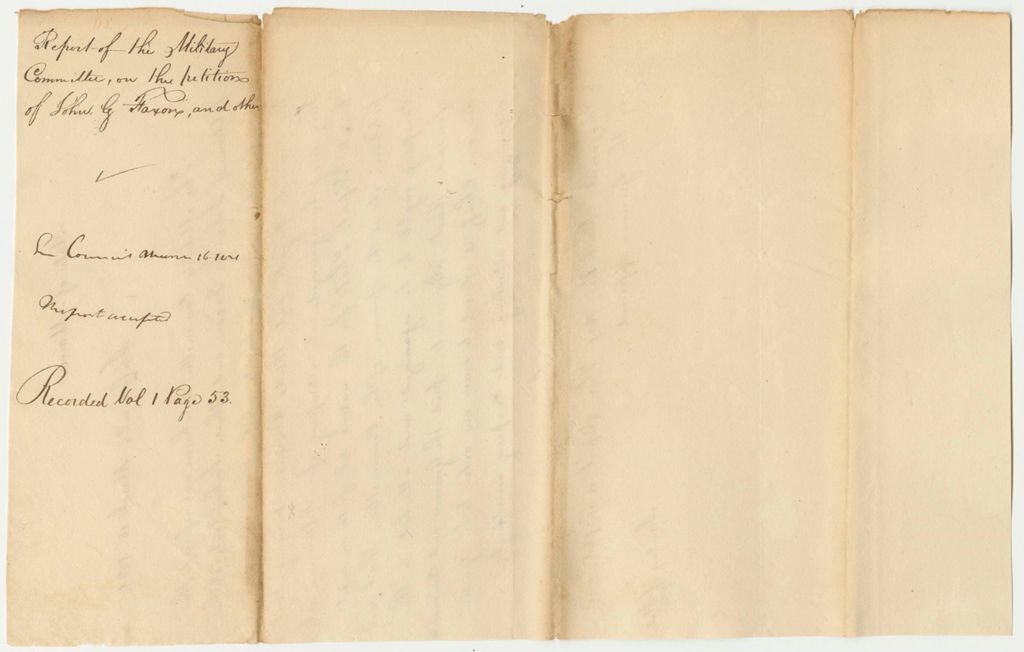 Report of the Military
Committee, on the petitions
of John G Faxon, and other
In Council March 16 1821
Report accepted
Recorded Vol 1 Page 53.